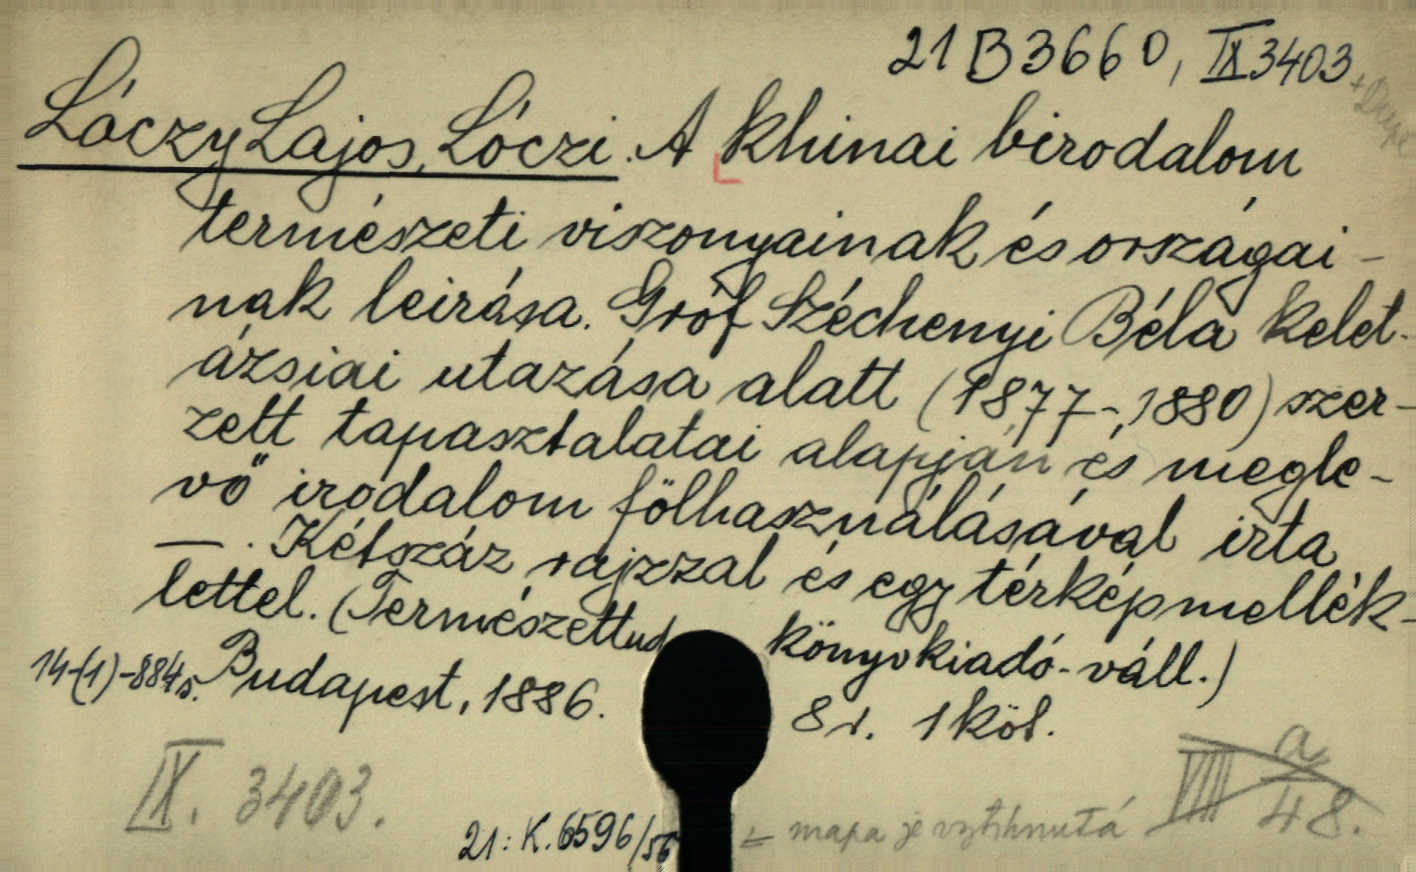 21 B 3660, IX 3403
+ Dupl
Lóczy Lajos, Lóczi. A khinai birodalom
természeti viszonyainak és országai-
nak leirása. Gróf Széchenyi Béla kelet-
ázsiai utazása alatt (1877-1880) szer-
zett tapasztalatai alapján és megle-
vő irodalom fölhasználásával irta
—. Kétszáz rajzzal és egy térképmellék-
lettel. (Természettud könyvkiadó-váll.)
14-(1)-884s. Budapest, 1886. 8 r. 1 köt.
IX. 3403.
VIII a/48.
21: K. 6596/56 = mapa je vytrhnutá